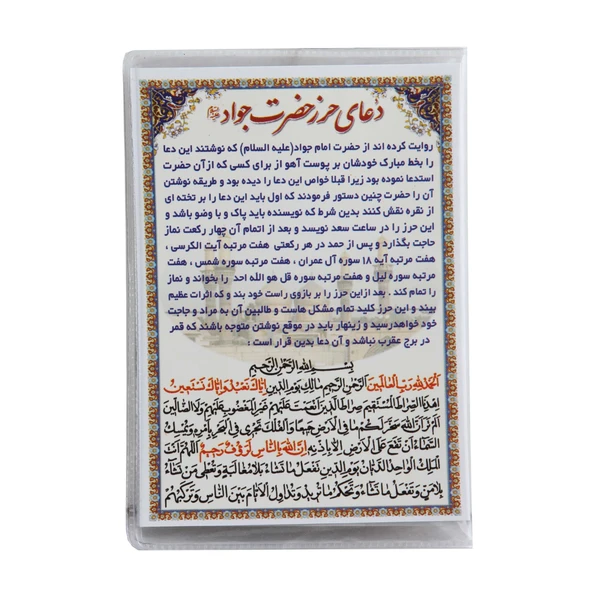 دعای حرز حضرت جواد
روایت کرده اند از حضرت امام جواد(علیه السلام) که نوشتند این دعا
را بخط مبارک خودشان بر پوست آهو از برای کسی که ازآن حضرت
استدعا نموده بود زیرا قبلا خواص این دعا را دیده بود و طریقه نوشتن
آن را حضرت چنین دستور فرمودند که اول باید این دعا را بر تخته ای
از نقره نقش کنند بدین شرط که نویسنده باید پاک و با وضو باشد و
این حرز را در ساعت سعد نویسد و بعد از اتمام آن چهار رکعت نماز
حاجت بگذارد و پس از حمد در هر رکعتی هفت مرتبه آیت الکرسی ،
هفت مرتبه آیه ۱۸ سوره آل عمران ، هفت مرتبه سوره شمس ، هفت
مرتبه سوره لیل و هفت مرتبه سوره قل هو الله احد را بخواند و نماز
را تمام کند . بعد ازاین حرز را بر بازوی راست خود بند و که اثرات عظیم
ببیند و این حرز کلید تمام مشکل هاست و طالبین آن به مراد و حاجت
خود خواهدرسید و زینهار باید در موقع نوشتن متوجه باشند که قمر
در برج عقرب نباشد و آن دعا بدین قرار است :
بِسْمِ اللهِ الرَّحْمٰنِ الرَّحیمِ
اَلْحَمْدُ لِلّهِ رَبِّ الْعالَمینَ اَلرَّحْمٰنِ الرَّحیمِ مالِكِ یَوْمِ الدّینِ اِیّاكَ نَعْبُدُ وَ اِیّاكَ نَسْتَعینُ
اِهْدِنَا الصِّراطَ الْمُسْتَقیمَ صِراطَ الَّذینَ اَنْعَمْتَ عَلَیْهِمْ غَیْرِ الْمَغْضُوبِ عَلَیْهِمْ وَلَا الضّالّینَ
اَلَمْ تَرَ اَنَّ اللهَ سَخَّرَ لَكُمْ ما فِی الْاَرْضِ جَمیعًا وَ الْفُلْكَ تَجْری فِی الْبَحْرِ بِاَمْرِهِ وَ یُمْسِكُ
السَّماءَ اَنْ تَقَعَ عَلَی الْاَرْضِ اِلّا بِاِذْنِهِ اِنَّ اللهَ بِالنّاسِ لَرَؤُفٌ رَحیمٌ اَللّهُمَّ اَنْتَ
الْمَلِكُ الْواحِدُ الدَّیّانُ یَوْمَ الدّینِ تَفْعَلُ ما تَشاءُ بِلا مُغالَبَةٍ وَ تُعْطی مَنْ تَشاءُ
بِلا مَنٍّ وَ تَفْعَلُ ما تَشاءُ وَ تَحْكُمُ ما تُریدُ وَ تُداوِلُ الْاَیّامَ بَیْنَ النّاسِ وَ تُرَكِّبُهُمْ